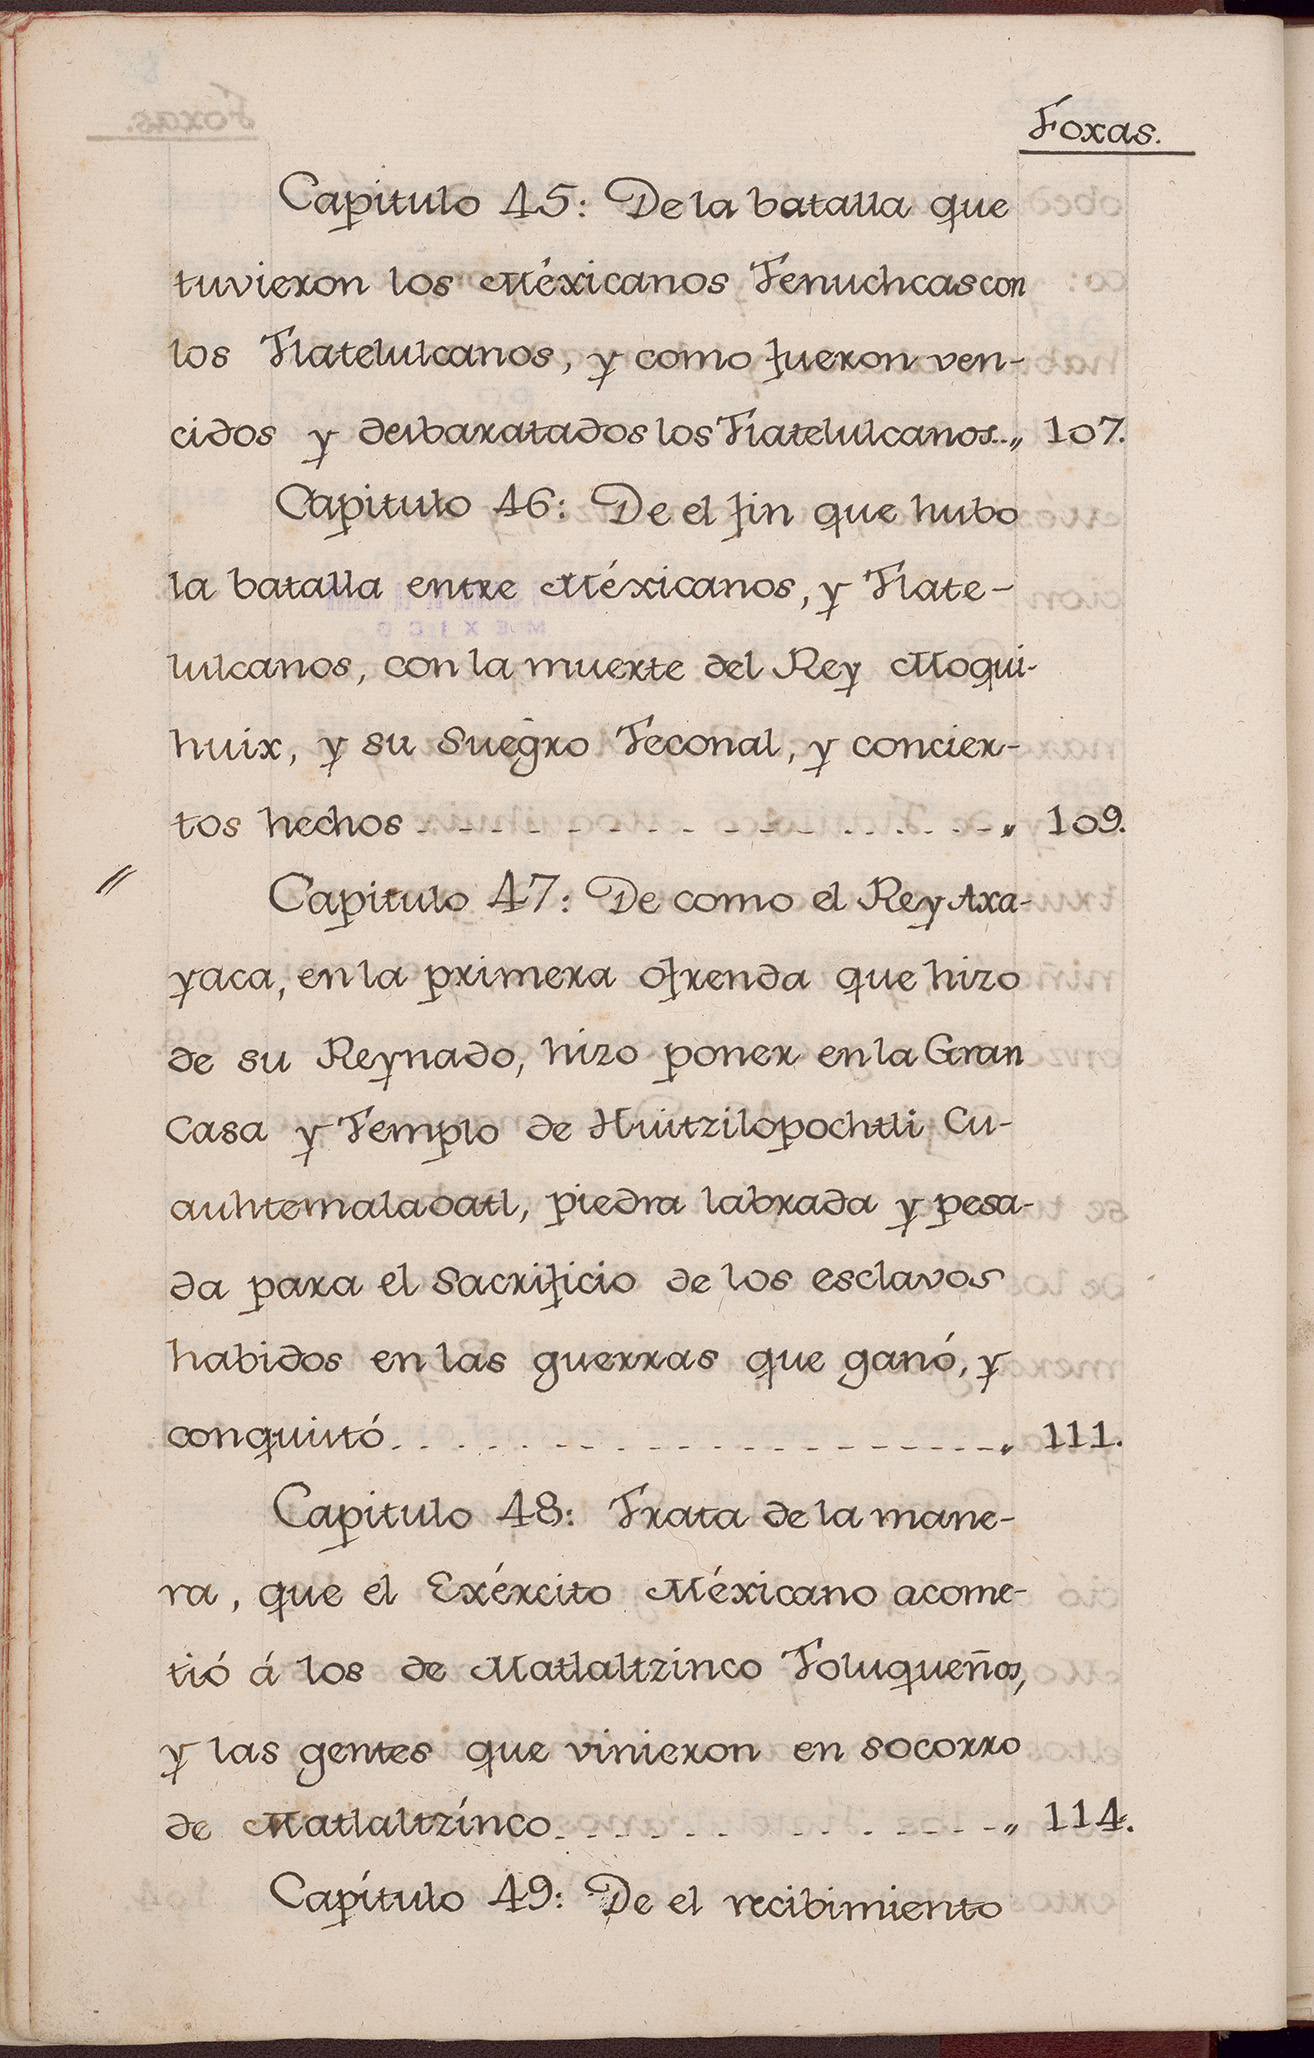 Foxas.
Capitulo 45: De la batalla que
tuvieron los Méxicanos Tenuchcas con
los Tlatelulcanos, y como fueron ven-
cidos y desbaratados los Tlatelulcanos..„ 107.
Capitulo 46: De el fin que hubo
la batalla entre Méxicanos, y Tlate-
lulcanos, con la muerte del Rey Moqui-
huix, y su Suegro Teconal, y concier-
tos hechos - - - - - - - - - - - - - - - „ 109.
//
Capitulo 47: De como el Rey Axa-
yaca, en la primera ofrenda que hizo
de su Reynado, hizo poner en la Gran
Casa y Templo de Huitzilopochtli Cu-
auhtemalacatl, piedra labrada y pesa-
da para el Sacrificio de los esclavos
habidos en las guerras que ganó, y
conquistó - - - - - - - - - - - - - - - „ 111.
Capitulo 48: Trata de la mane-
ra, que el Exército Méxicano acome-
tió á los de Matlaltzinco Toluqueños,
y las gentes que vinieron en socorro
de Matlaltzínco - - - - - - - - - - - - „ 114.
Capítulo 49: De el recibimiento